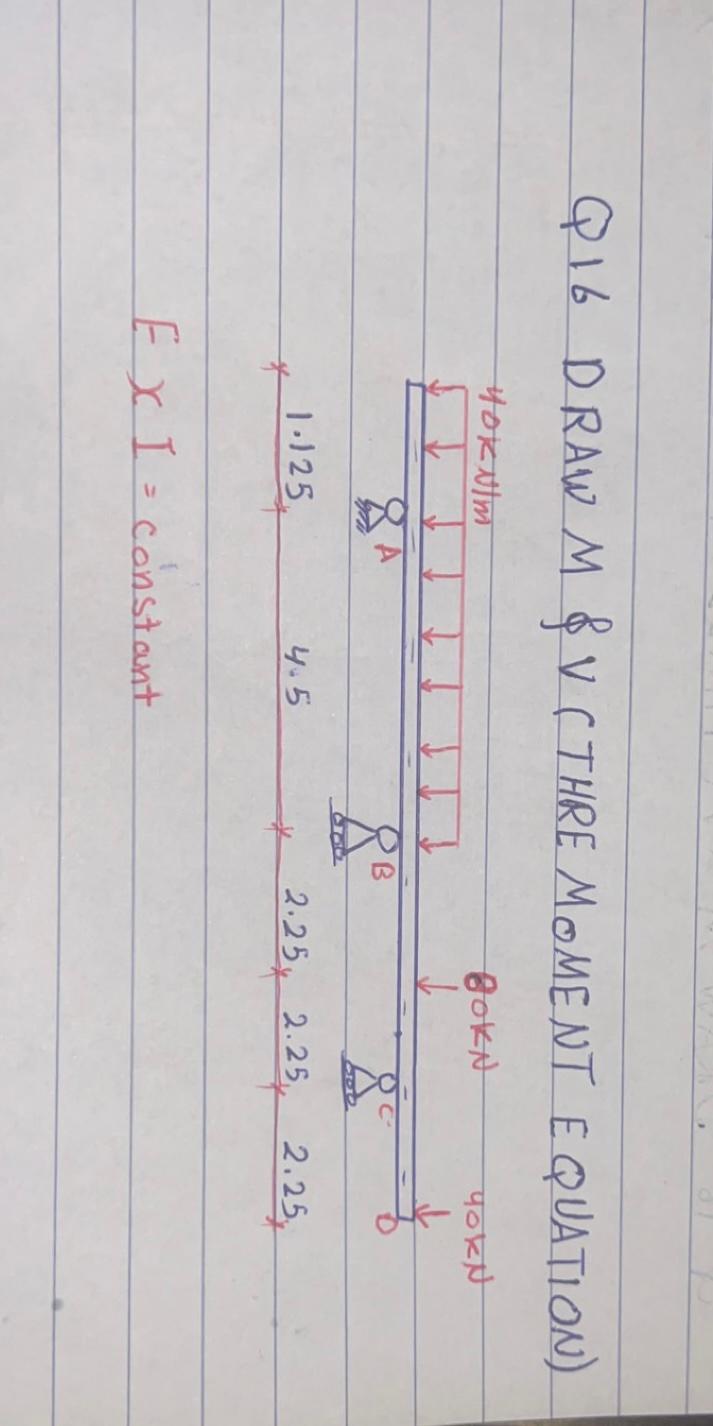 Q16 DRAW M & V (THRE MOMENT EQUATION)
40KN/m 80KN 40KN
A B C D
1.125 4.5 2.25 2.25 2.25
E x I = constant